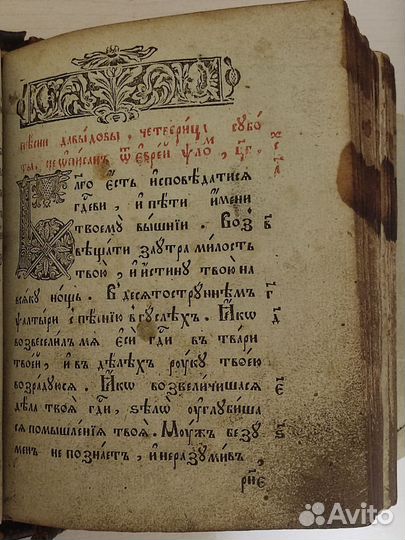 пѣсни давыдовы, четверицꙋ сꙋбо
ты, не ѡписанъ ѿ еврей ѱало́м, ч҃г.
Бл҃го есть исповѣдатися
гд҇еви, и пѣти имени
твоемꙋ вышнїи. Воз
в҃
вѣщати заꙋтра милость
твою, и истинꙋ твою на
всякꙋ нощь. В десятострꙋннѣм
г҃
ѱалтыри с пѣнїю в гꙋслѣхъ. Ꙗкѡ
д҃
возвеселил мя еси гд҇и в твари
твоей, и в дѣлѣхъ рꙋкꙋ твоею
возрадꙋюся. Ꙗкѡ возвеличишася
є҃
дѣла твоя гд҇и, ѕѣлѡ оуглꙋбиша
ѕ҃
ся помышленїя твоя. Моужъ безꙋ
менъ не познаетъ, и неразꙋмивъ,
рн҃є
Avito